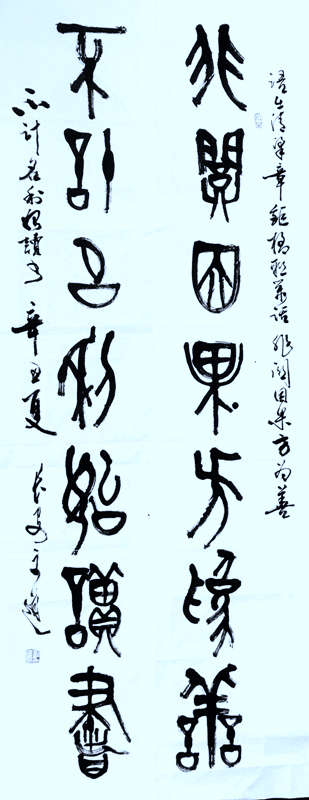 语出清梁章鉅楹联叢话非關因果方为善
非關因果方為善
不計名利始讀書
不计名利始讀书 辛丑夏 长安